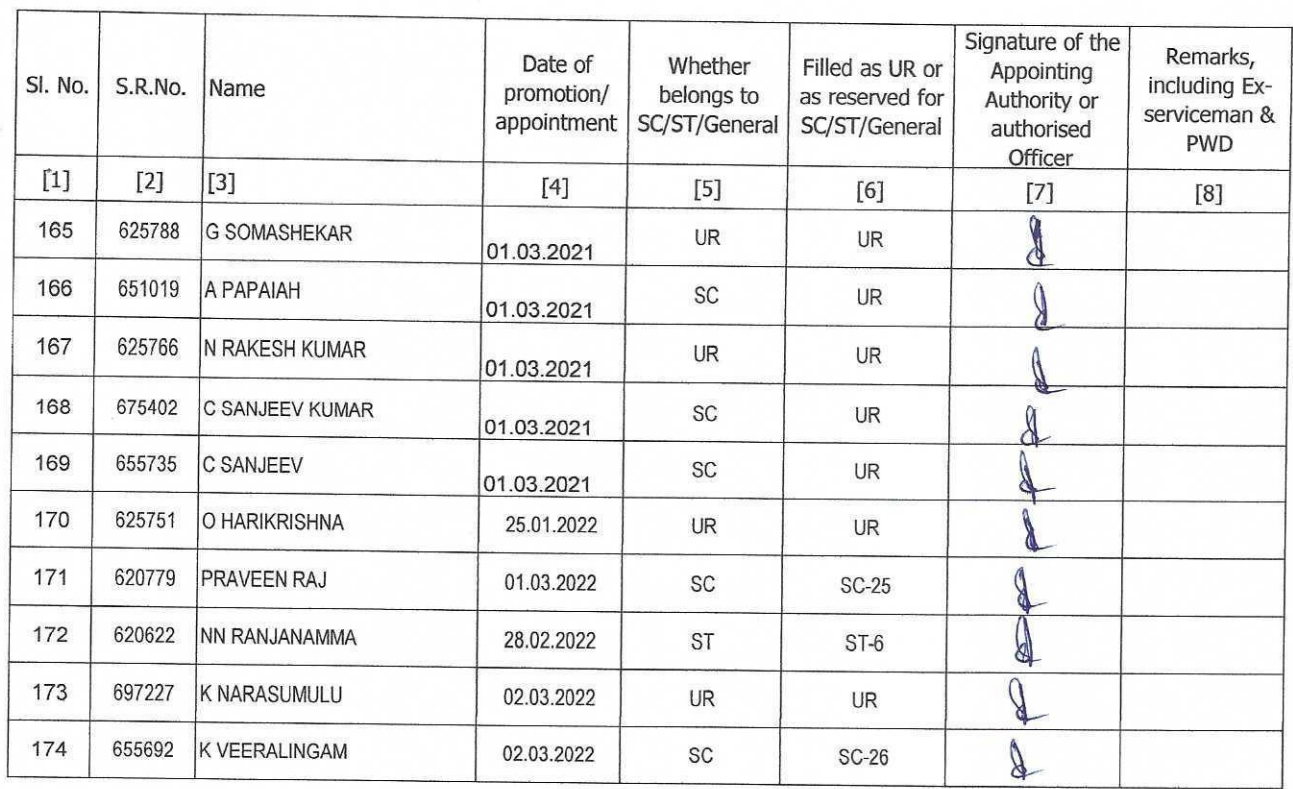 Sl. No. S.R.No. Name Date of promotion/ appointment Whether belongs to SC/ST/General Filled as UR or as reserved for SC/ST/General Signature of the Appointing Authority or authorised Officer Remarks, including Ex-serviceman & PWD
[1] [2] [3] [4] [5] [6] [7] [8]
165 625788 G SOMASHEKAR 01.03.2021 UR UR
166 651019 A PAPAIAH 01.03.2021 SC UR
167 625766 N RAKESH KUMAR 01.03.2021 UR UR
168 675402 C SANJEEV KUMAR 01.03.2021 SC UR
169 655735 C SANJEEV 01.03.2021 SC UR
170 625751 O HARIKRISHNA 25.01.2022 UR UR
171 620779 PRAVEEN RAJ 01.03.2022 SC SC-25
172 620622 NN RANJANAMMA 28.02.2022 ST ST-6
173 697227 K NARASUMULU 02.03.2022 UR UR
174 655692 K VEERALINGAM 02.03.2022 SC SC-26